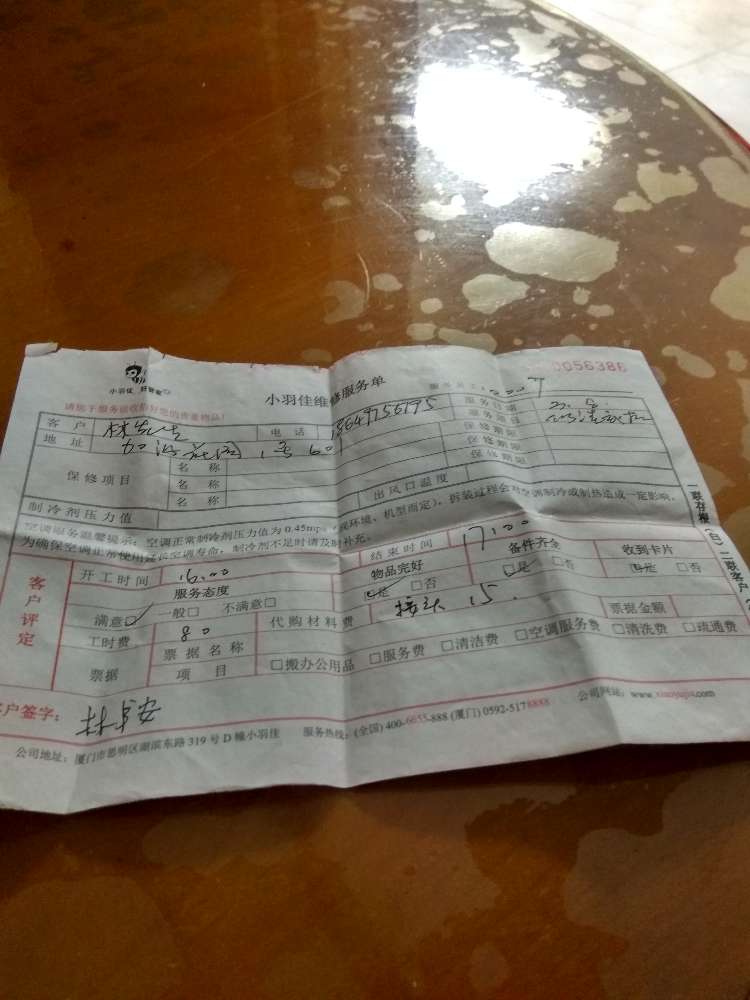 小羽佳 好管家
小羽佳维修服务单
005638
请赐予服务验收保好您的贵重物品!
客户 林先生 电话
服务日期
地址 1号60
服务项目
保修项目 名称 保修期限
名称 保修期限
名称 保修期限
制冷剂压力值 出风口温度
空调服务温馨提示:空调正常制冷剂压力值为0.45mpa 环境、机型而定),拆装过程会对空调制冷或制热造成一定影响,
为确保空调正常使用延长空调寿命,制冷剂不足时请及时补充。
客户评定
开工时间 16:00 结束时间 17:00
服务态度 物品完好 备件齐全 收到卡片
满意☑ 一般□ 不满意□ ☑是 □否 ☑是 □否 ☑是 □否
工时费 80 代购材料费 接头 15. 票据金额
票据 票据名称
项目 □搬办公用品 □服务费 □清洁费 □空调服务费 □清洗费 □疏通费
客户签字:
公司地址:厦门市思明区湖滨东路319号D幢小羽佳 服务热线:(全国)400-6655-888 (厦门) 0592-5178888 公司网站:www.xiaoyujia.com
一联存根(白)二联客户